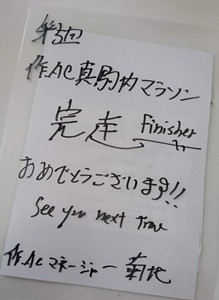 第3回
作.AC真駒内マラソン
完走 finisher
おめでとうございます!!
See you next time
作.ACマネージャー 菊地